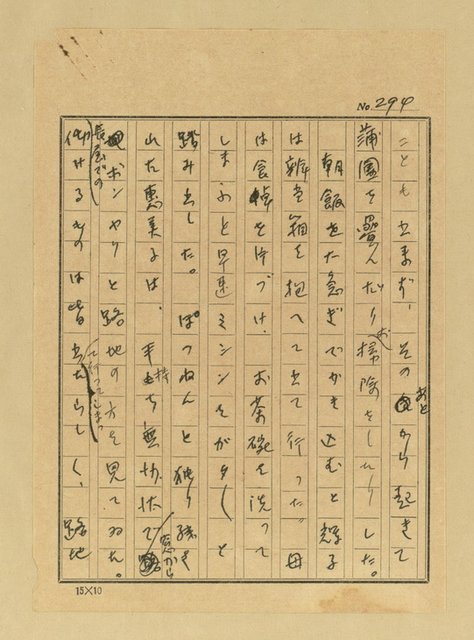 No. 294
ことも出来ず、そのあとから起きて
蒲団を畳んだりお掃除をしたりした。
朝飯を大急ぎでかき込むと輝子
は辨当箱を抱へて出て行った。母
は食卓を片づけ、お茶碗を洗って
しまふと早速ミシンをがタ〱と
踏み出した。ぽつねんと独り残さ
れた恵美子は、手持ち無沙汰で窓から
ボンヤリと路地の方を見てゐた。
長屋での
仲せるものは皆出て行ってしまったらしく、路地
15×10